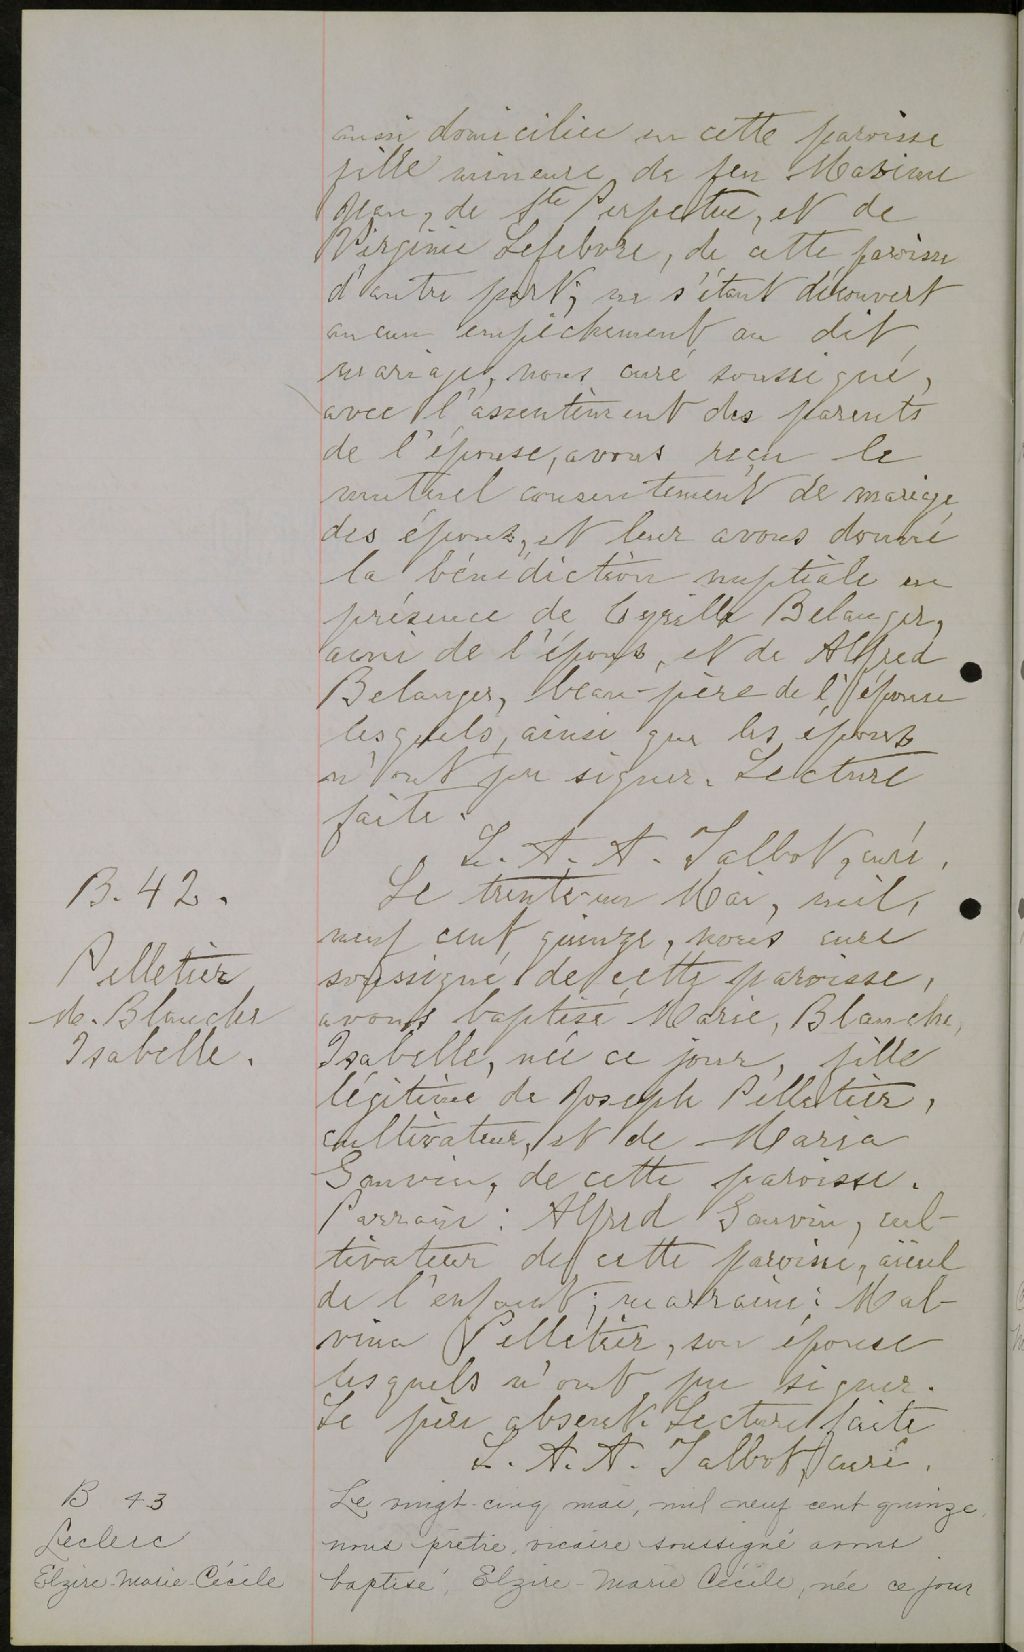 aussi domiciliée en cette paroisse
fille mineure de feu Maxime
Jean, de Ste Perpetue, et de
Virginie Lefebvre, de cette paroisse
d'autre part; ne s'étant découvert
aucun empêchement au dit
mariage, nous curé soussigné,
avec l'assentiment des parents
de l'épouse, avons reçu le
mutuel consentement de mariage
des époux, et leur avons donné
la bénédiction nuptiale en
présence de Cyrille Belanger,
ami de l'époux, et de Alfred
Belanger, beau-père de l'épouse
lesquels, ainsi que les époux
n'ont pu signer. Lecture
faite.
L. A. A. Talbot, curé.
B. 42.
Pelletier
M. Blanche
Isabelle.
Le trente-un Mai, mil,
neuf cent quinze, nous curé
soussigné de cette paroisse,
avons baptisé Marie, Blanche,
Isabelle, née ce jour, fille
légitime de Joseph Pelletier,
cultivateur, et de Maria
Gauvin, de cette paroisse.
Parrain: Alfred Gauvin, cul-
tivateur de cette paroisse, aïeul
de l'enfant; marraine: Mal-
vina Pelletier, son épouse
lesquels n'ont pu signer.
Le père absent. Lecture faite
L. A. A. Talbot, curé.
B 43
Leclerc
Elzire-Marie-Cécile
Le vingt-cinq mai, mil neuf cent quinze,
nous prêtre, vicaire soussigné avons
baptisé, Elzire-Marie Cécile, née ce jour